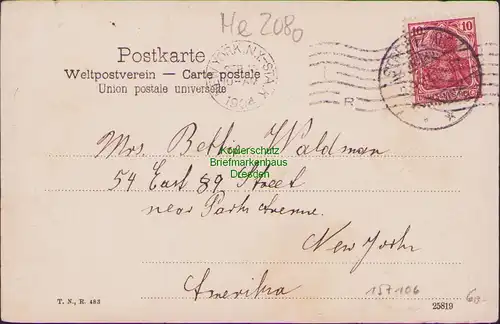 He 2080
Postkarte
Weltpostverein — Carte postale
Union postale universelle
NEW YORK, N.Y. STA. K
1904
R
10
Mrs Bettie Waldman
Kopierschutz
Briefmarkenhaus
Dresden
54 East 89 Street
near Park Avenue.
New York
Amerika
157106
6.-
T. N., R. 483
25819